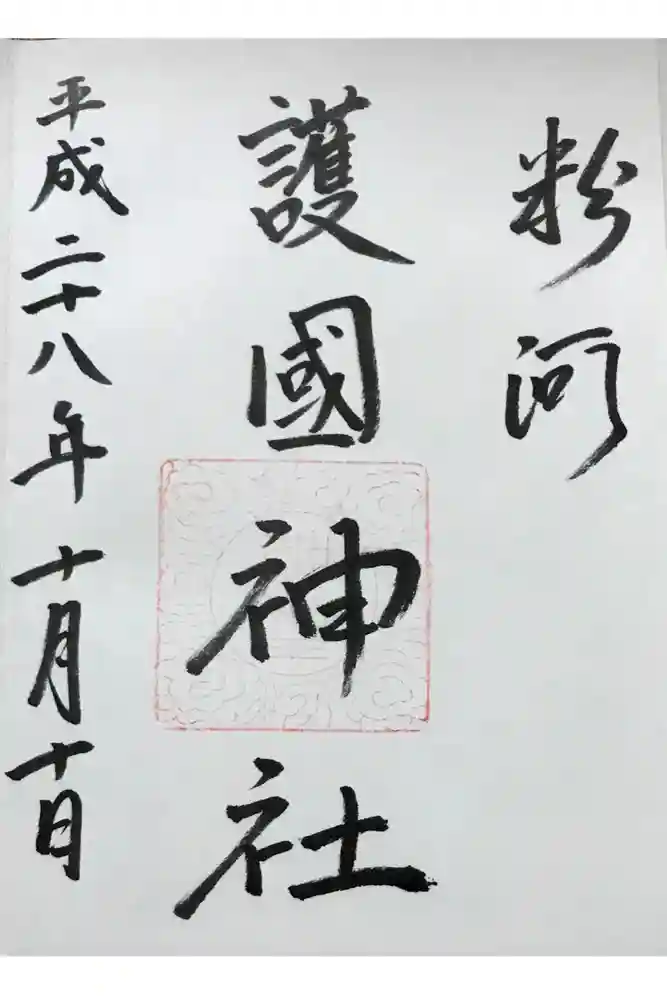 粉河
護國神社
平成二十八年十月十日